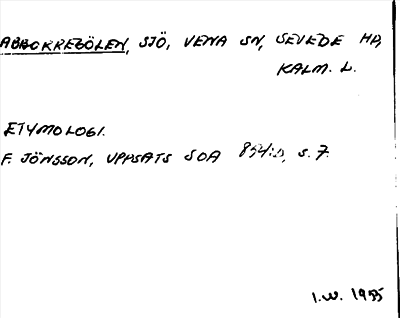 ABBORREGÖLEN, SJÖ, VENA SN, SEVEDE HD,
KALM. L.
ETYMOLOGI.
F. JÖNSSON, UPPSATS SOA 854:D, S. 7.
I.W. 1955